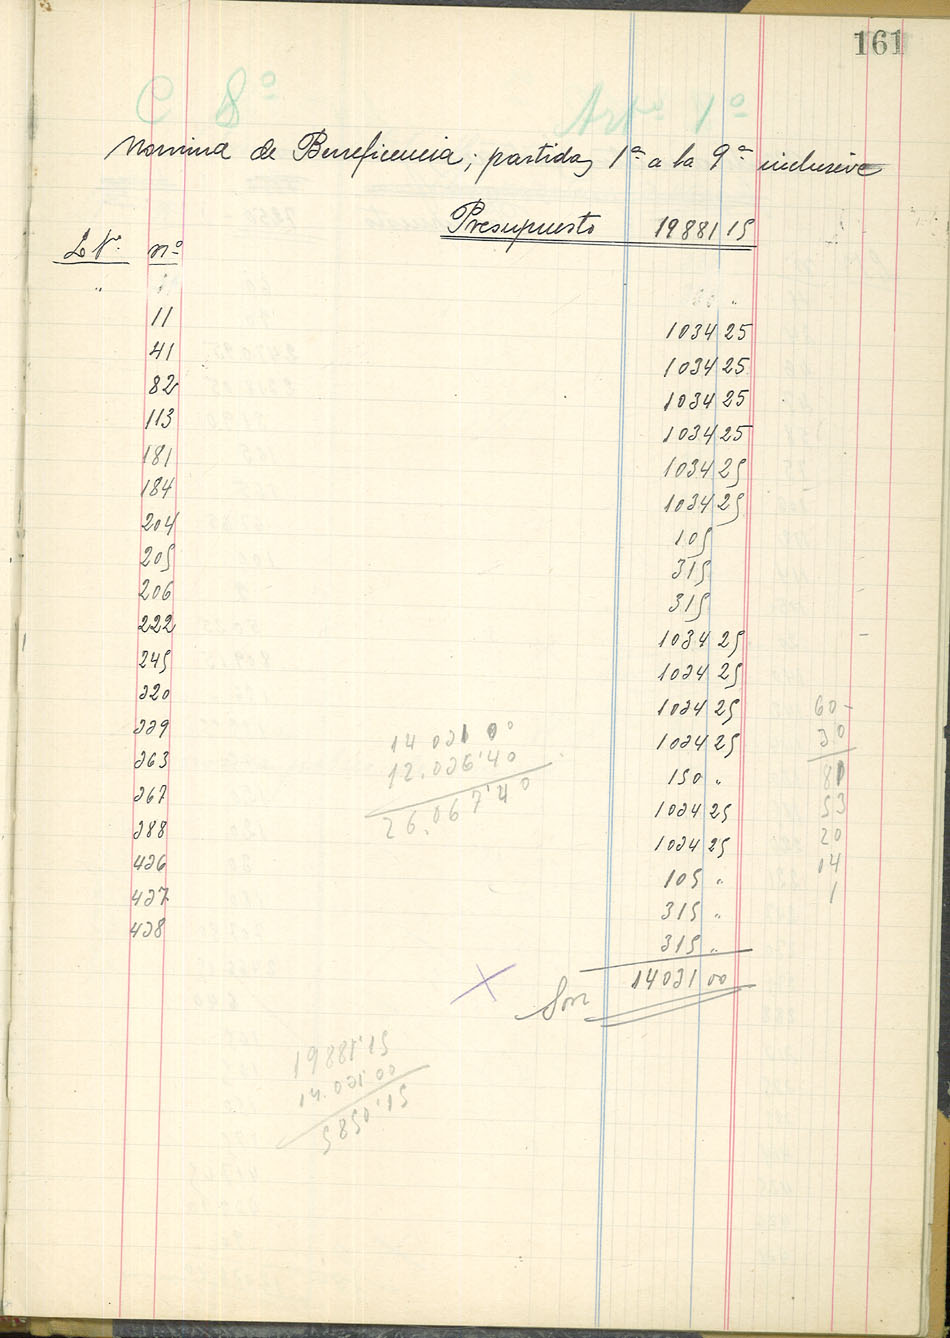 161
C 8º Artº 1º
Nomina de Beneficencia; partidas 1ª a la 9ª inclusive
Presupuesto 19881 15
L N. nº
"
11 1034 25
41 1034 25
82 1034 25
113 1034 25
181 1034 25
184 1034 25
204 105
205 315
206 315
222 1034 25
245 1034 25
320 1034 25
339 1034 25
363 150 "
367 1034 25
388 1034 25
436 105 "
437 315 "
438 315 "
14031 00
14 031 00
12.036.40
26.067.40
60-
30
81
53
20
14
1
19881.15
14.031.00
5850.15